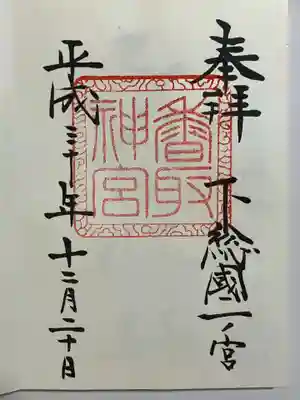 奉拝 下総國一ノ宮
香取神宮
平成三十年十二月二十日